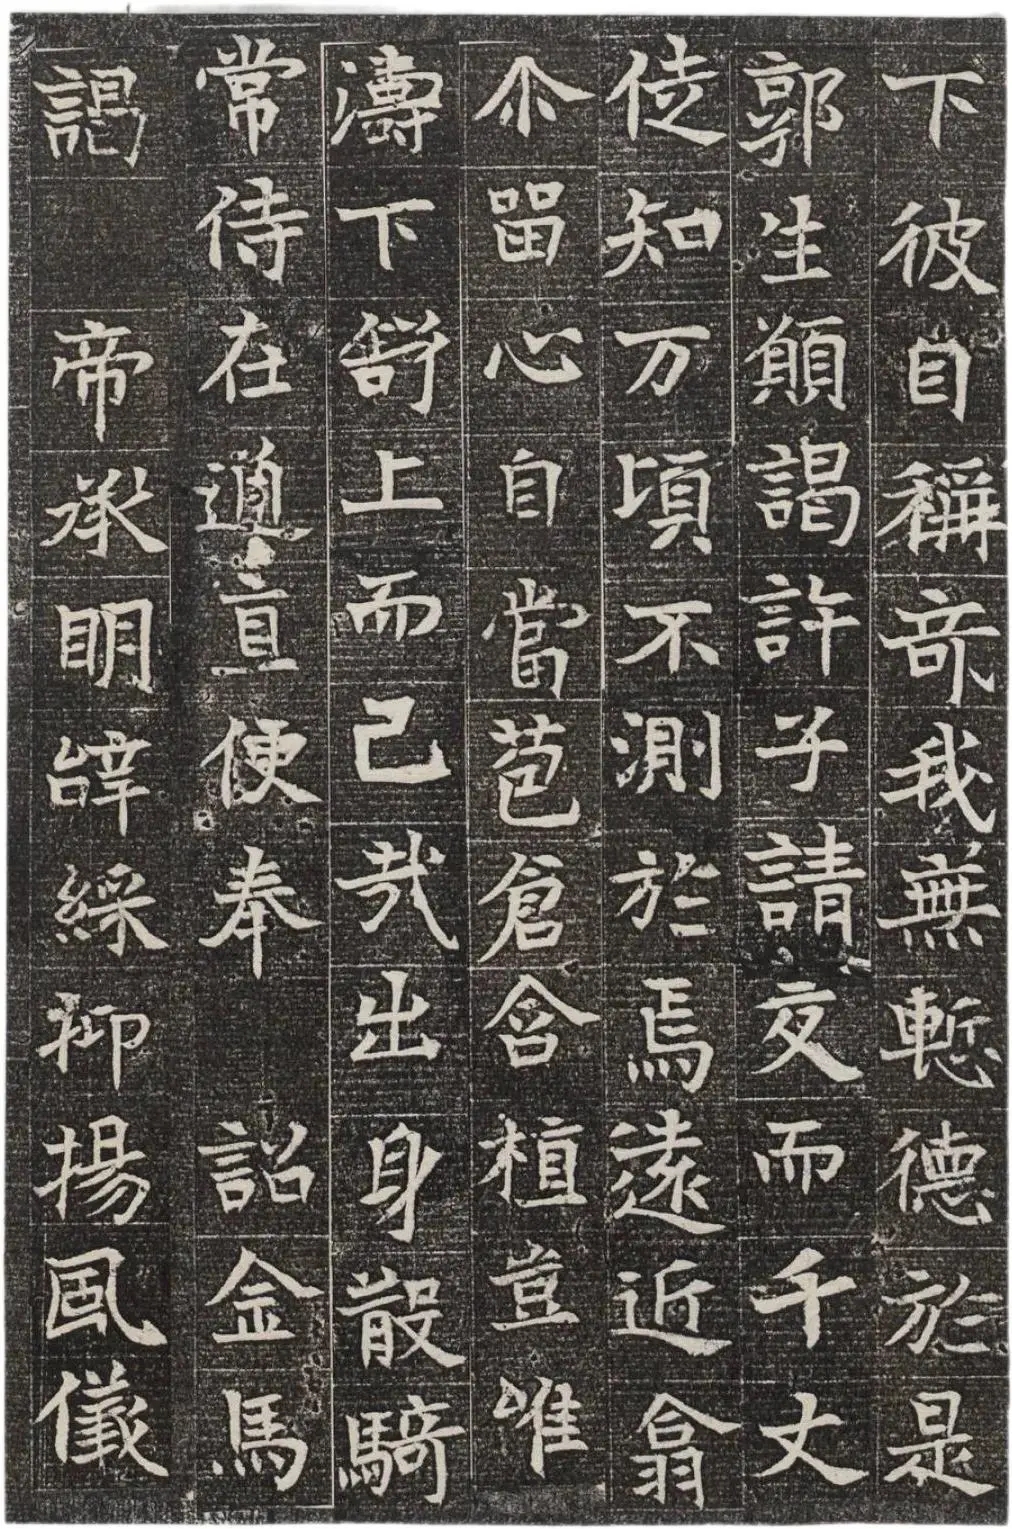 下彼自稱奇我無慙德於是
郭生願謁許子請交而千丈
徒知万頃不測於焉遠近翕
尒留心自當苞倉含植豈唯
濤下舒上而已哉出身散騎
常侍在道直便奉 詔金馬
謁 帝承明辭綵抑揚風儀